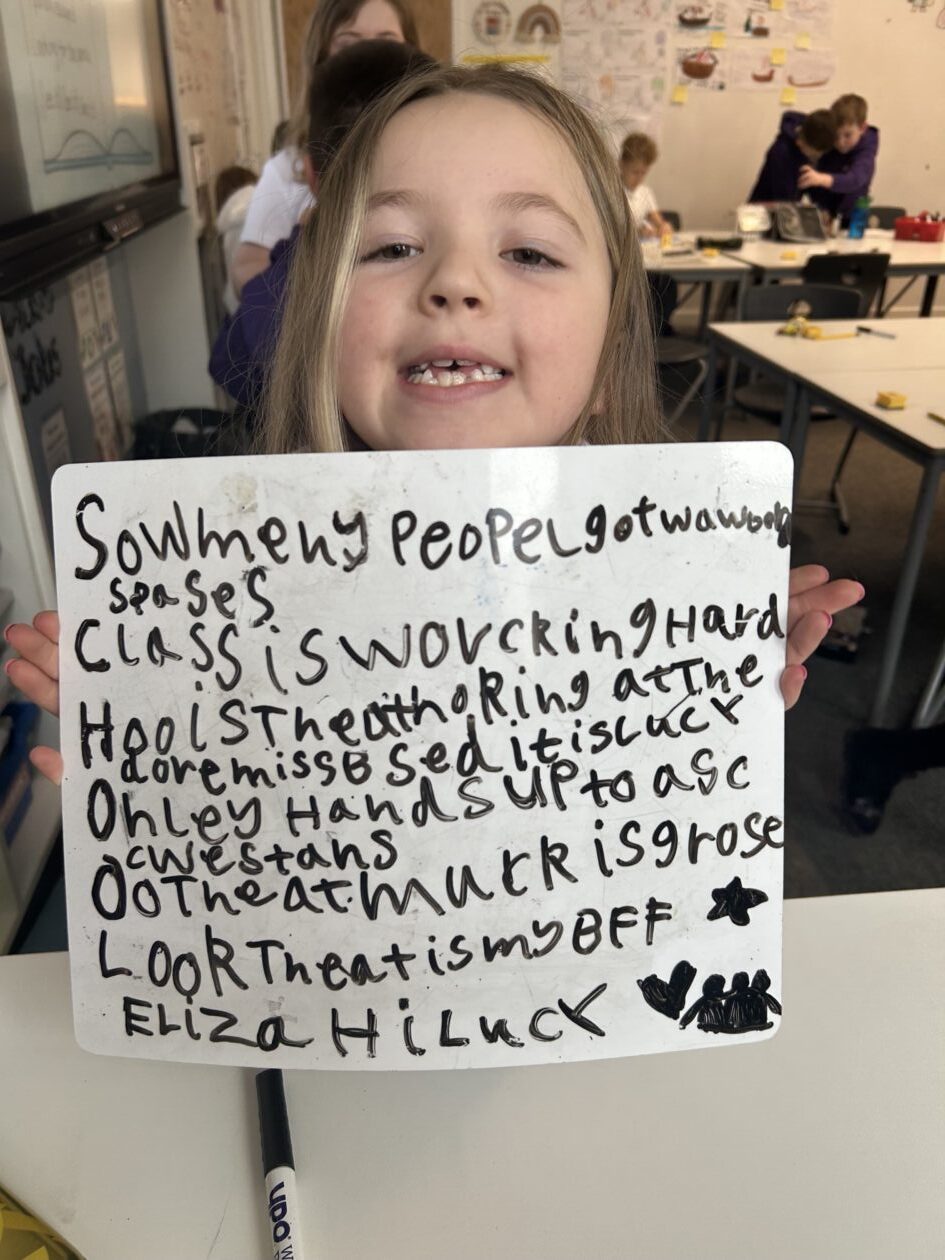 Sowmeny PeoPeL gotwawborg
spases
Class is worcking Hard
Hoo is Theathoking at The
doremissB sed it is Lucy
Ohley Hands UP to asc
cwestans
Oo The at murk is grose
Look Theat is my BFF
ELiza Hi Lucy
UDO